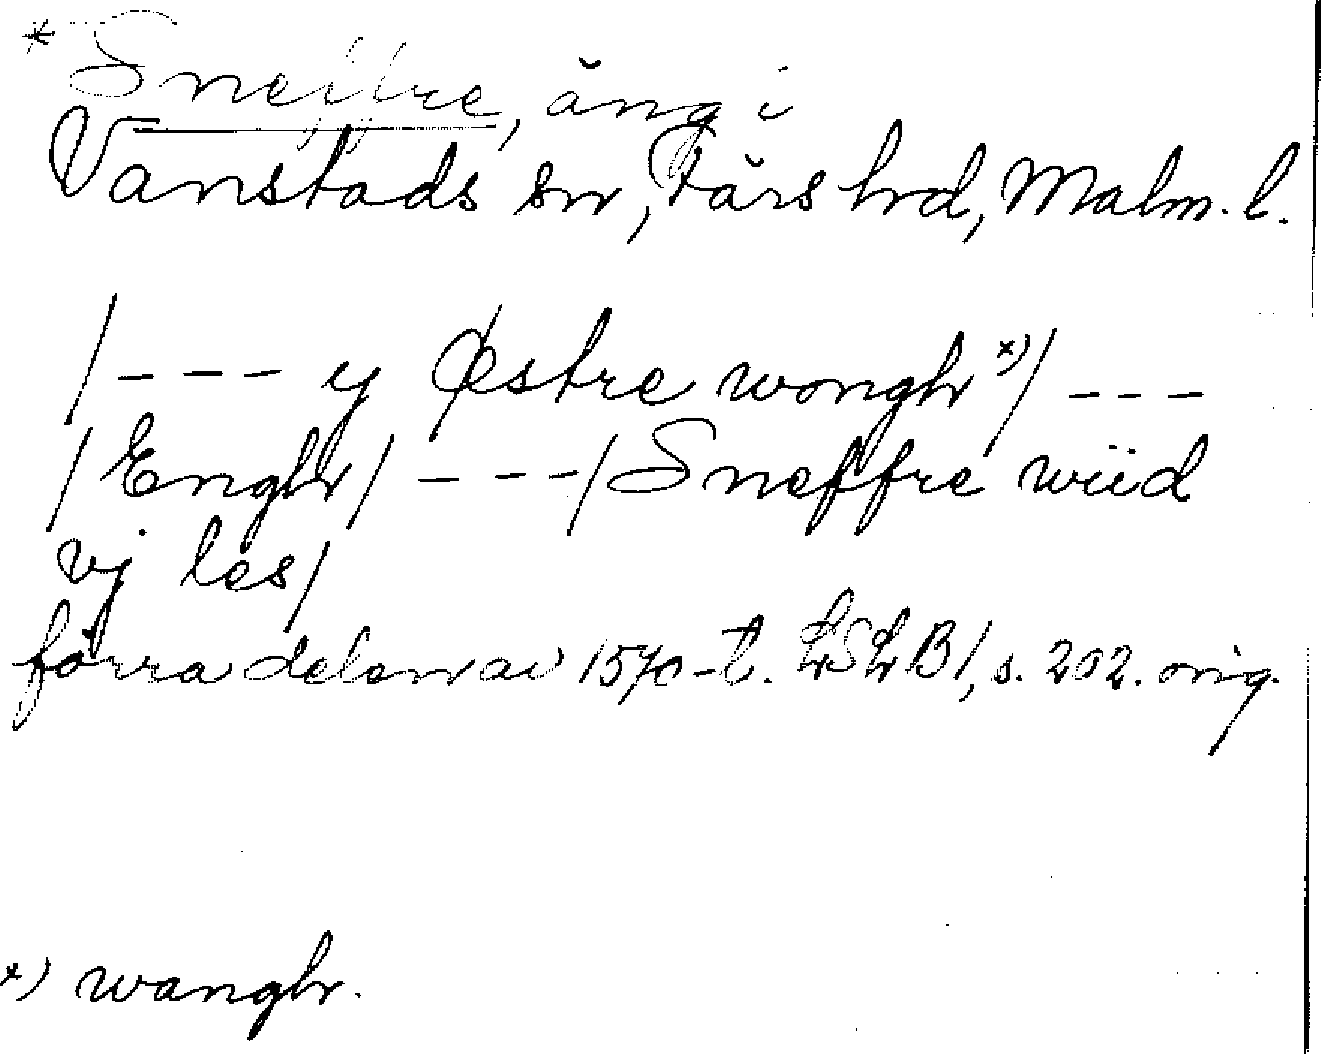 * Sneffre, äng i
Vanstads sn, Färs hrd, Malm. l.
/--- y Østre wongh x)/ ---
/Engh/ ---/Sneffre wiid
vj les/
förra delen av 1570-t. LSLB1, s. 202. orig.
x) wangh.